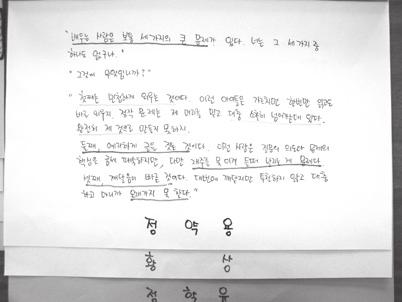 "배우는 사람은 보통 세 가지의 큰 문제가 있다. 너는 그 세 가지 중
하나도 없구나."
"그것이 무엇입니까?"
"첫째는 민첩하게 외우는 것이다. 이런 아이들은 가르치면 한번만 읽고도
바로 외우지. 정작 문제는 제 머리를 믿고 대충 슬쩍 넘어간다는데 있다.
완전히 제 것으로 만들지 못하지.
둘째, 예리하게 글을 짓는 것이다. 이런 사람은 질문의 의도와 문제의
핵심은 금세 파악하지만, 다만 재주를 못 이겨 들떠 날리는 게 문제다.
셋째, 깨달음이 빠른 것이다. 대번에 깨닫지만 투철하지 않고 대충
하고 마니까 오래가지 못 한다."
정 약 용
황 상
정 학 유